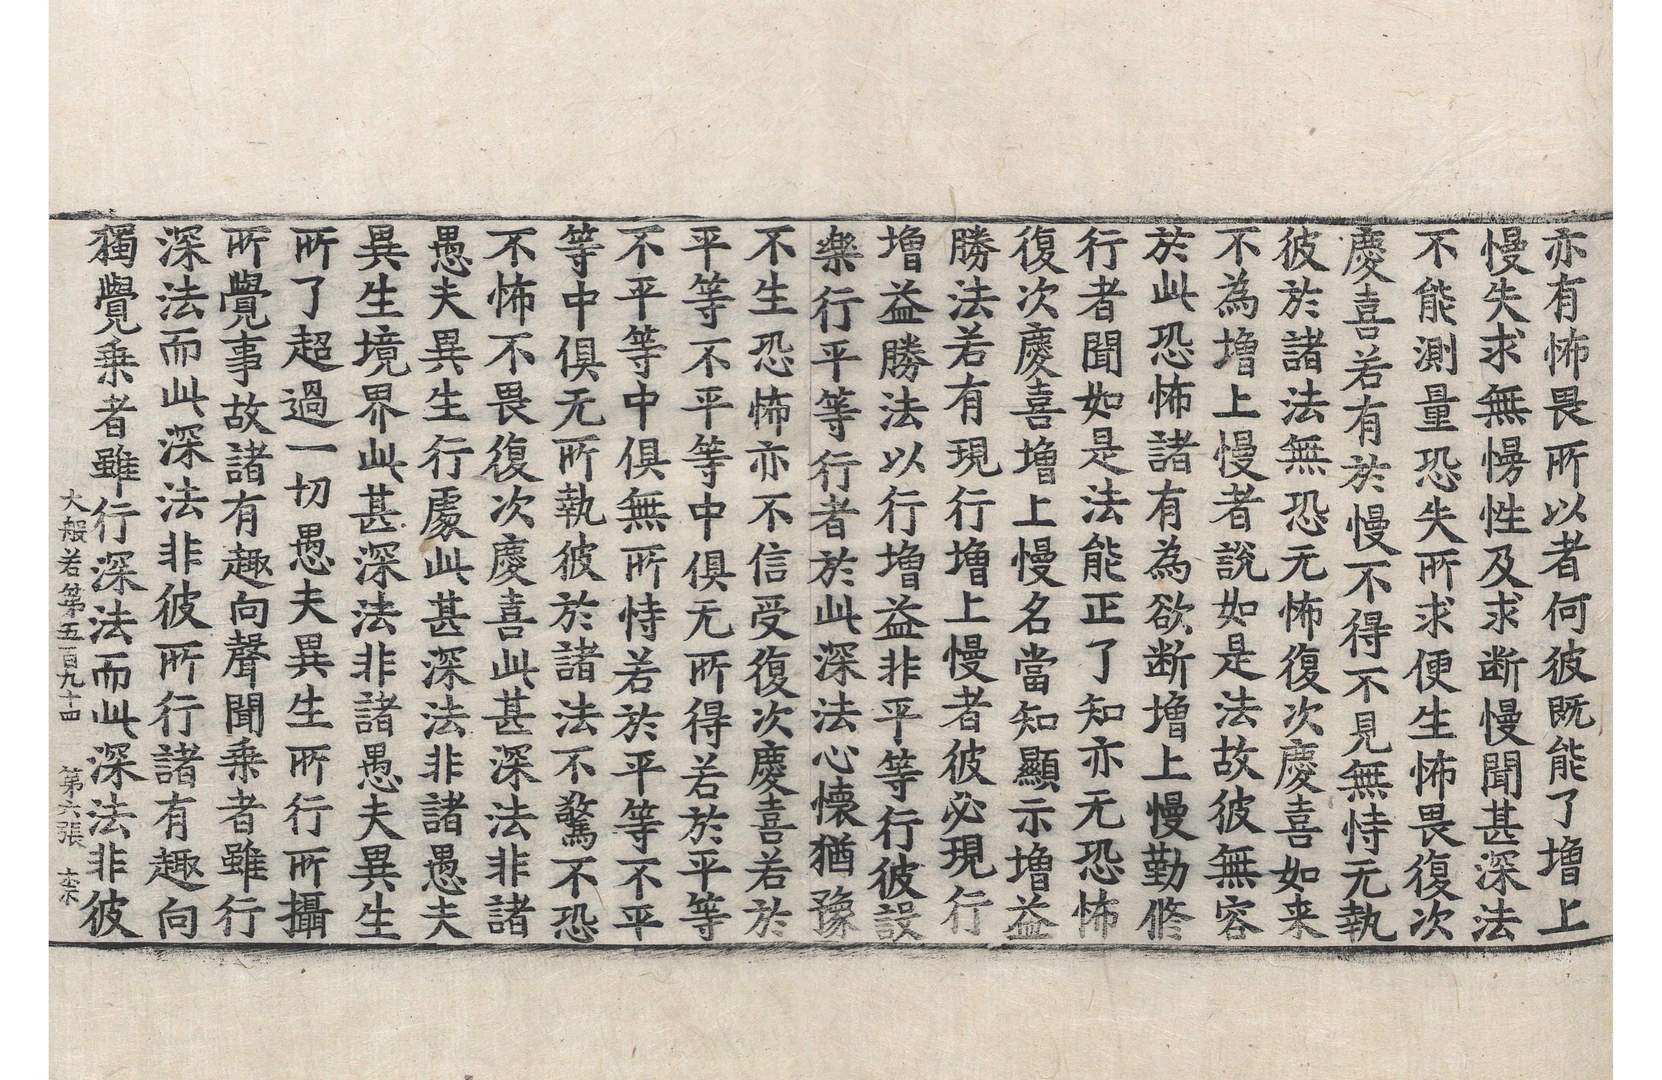 亦有怖畏所以者何彼既能了增上
慢失求無慢性及求断慢聞甚深法
不能測量恐失所求便生怖畏復次
慶喜若有於慢不得不見無恃无執
彼於諸法無恐无怖復次慶喜如来
不為增上慢者說如是法故彼無容
於此恐怖諸有為欲断增上慢勤修
行者聞如是法能正了知亦无恐怖
復次慶喜增上慢名當知顯示增益
勝法若有現行增上慢者彼必現行
增益勝法以行增益非平等行彼設
樂行平等行者於此深法心懐猶豫
不生恐怖亦不信受復次慶喜若於
平等不平等中俱无所得若於平等
不平等中俱無所恃若於平等不平
等中俱无所執彼於諸法不驚不恐
不怖不畏復次慶喜此甚深法非諸
愚夫異生行處此甚深法非諸愚夫
異生境界此甚深法非諸愚夫異生
所了超過一切愚夫異生所行所攝
所覺事故諸有趣向聲聞乗者雖行
深法而此深法非彼所行諸有趣向
獨覺乗者雖行深法而此深法非彼
大般若第五百九十四 第六張